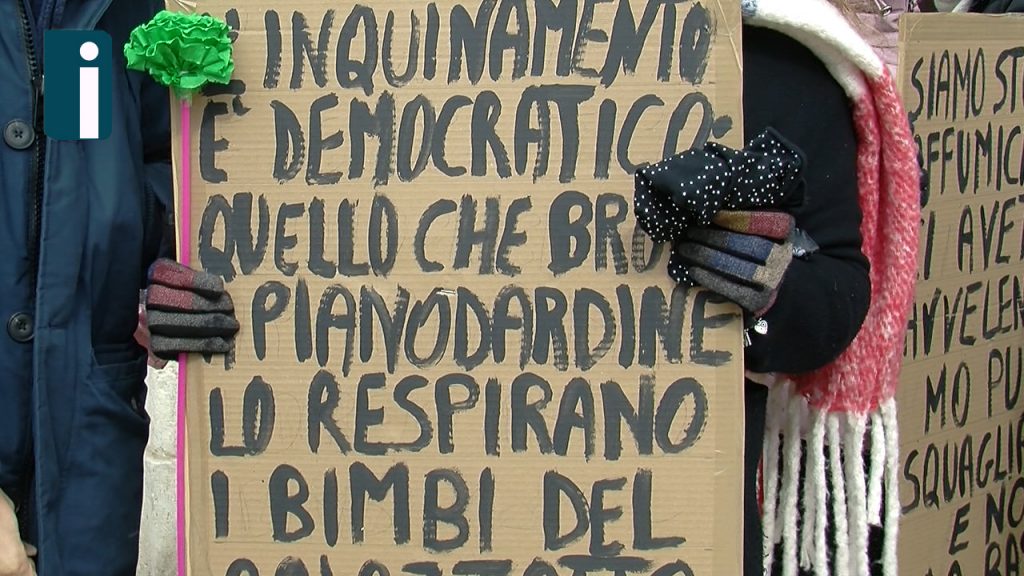 i
L'INQUINAMENTO
È DEMOCRATICO:
QUELLO CHE BRU
A PIANODARDINE
LO RESPIRANO
I BIMBI DEL
SIAMO ST
AFFUMICA
CI AVET
AVVELEN
MO PU
SQUAGLIA
E NO